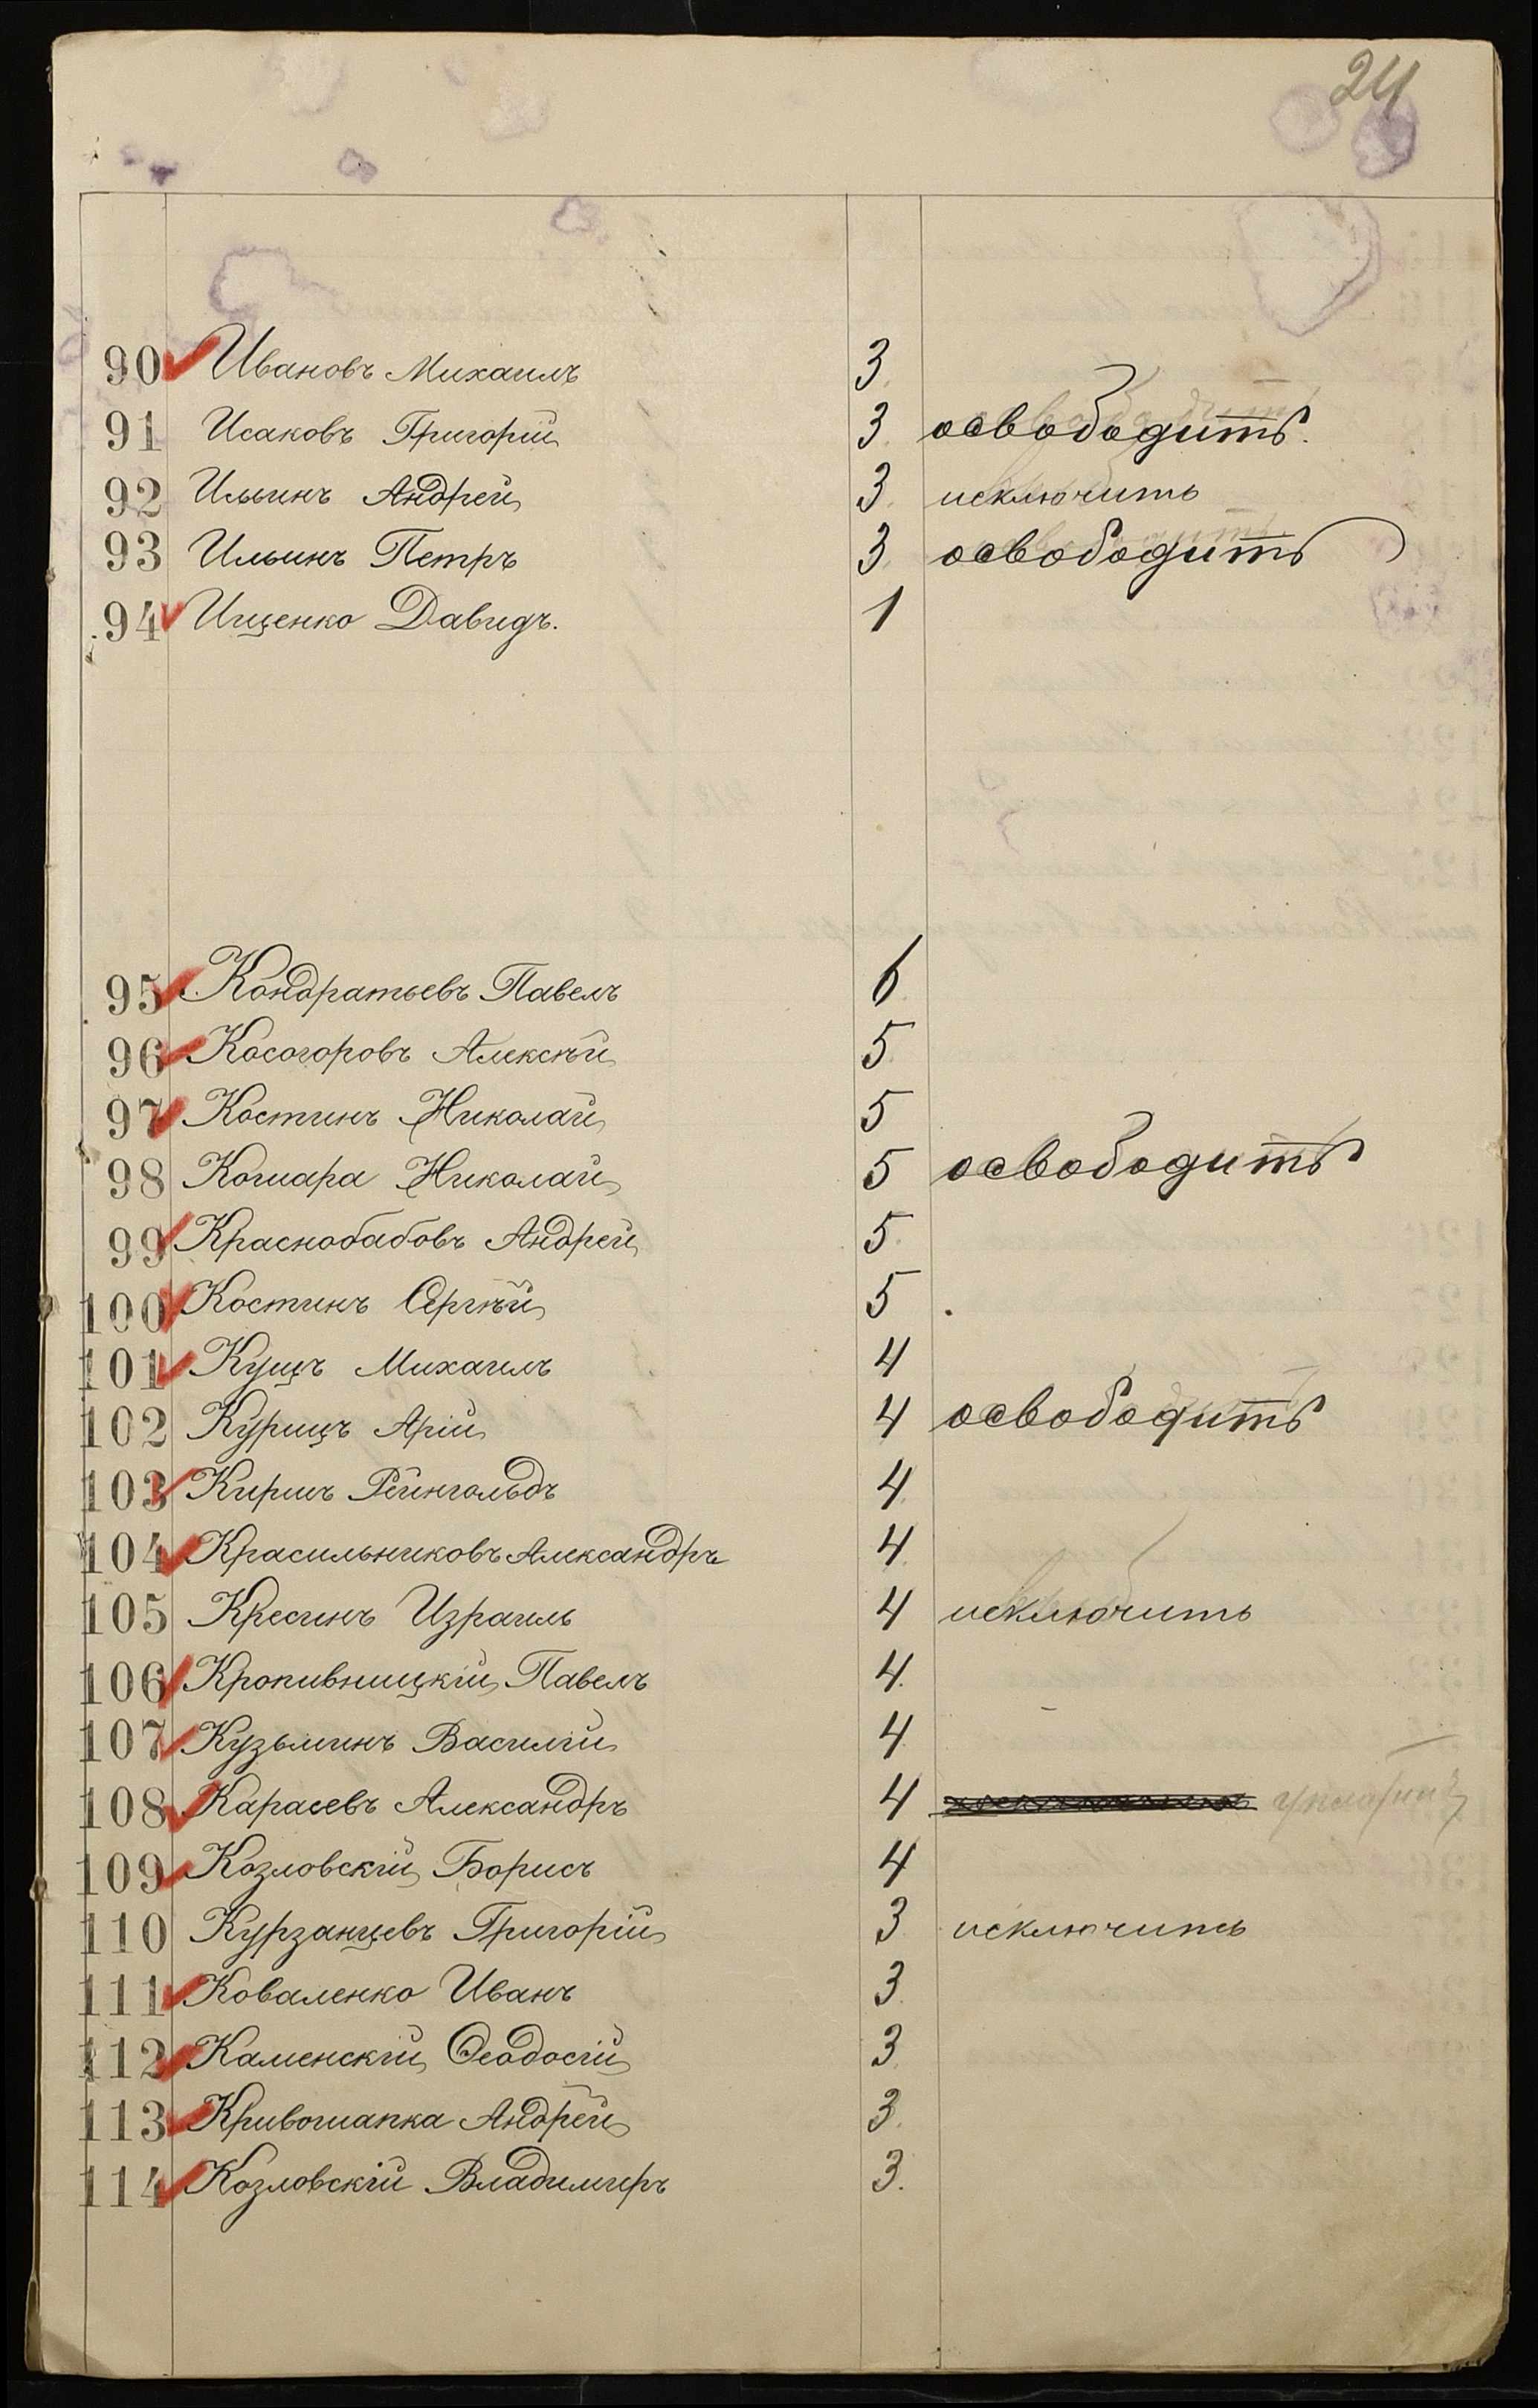 24
90 Ивановъ Михаилъ 3.
91 Исаковъ Григорій 3. освободить.
92 Ильинъ Андрей 3. исключить
93 Ильинъ Петръ 3. освободить
94 Ищенко Давидъ. 1
95 Кондратьевъ Павелъ 6
96 Косогоровъ Алексѣй 5.
97 Костинъ Николай 5
98 Кошара Николай 5 освободить
99 Краснобабовъ Андрей 5.
100 Костинъ Сергѣй 5
101 Кущъ Михаилъ 4
102 Курицъ Арій 4 освободить
103 Киршъ Рейнгольдъ 4.
104 Красильниковъ Александръ 4.
105 Кресинъ Израиль 4 исключить
106 Кропивницкій Павелъ 4.
107 Кузьминъ Василій 4
108 Карасевъ Александръ 4
109 Козловскій Борисъ 4
110 Курзанцевъ Григорій 3 исключить
111 Коваленко Иванъ 3.
112 Каменскій Ѳеодосій 3
113 Кривошапка Андрей 3.
114 Козловскій Владимиръ 3.